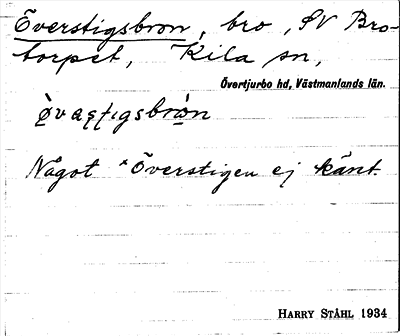 Överstigsbron, bro, SV Bro-
torpet, Kila sn,
Övertjurbo hd, Västmanlands län.
Något *Överstigen ej känt.
HARRY STÅHL 1934